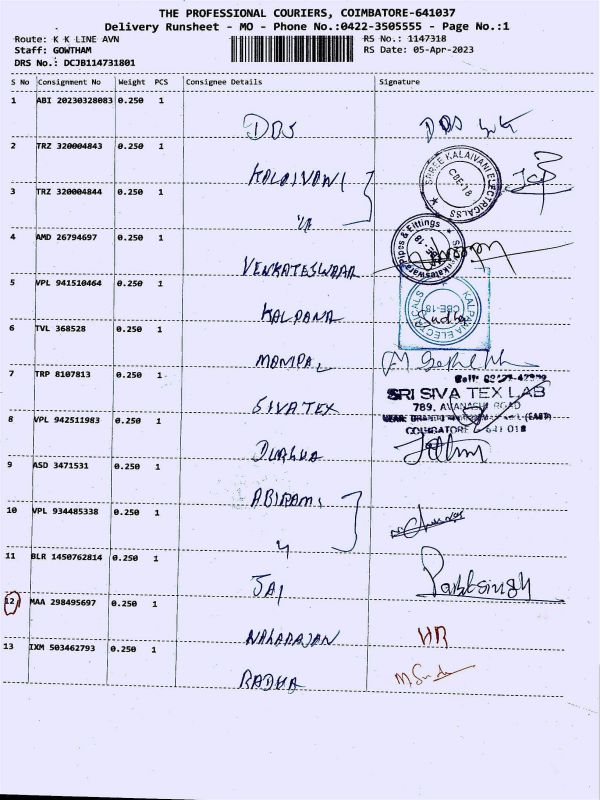 THE PROFESSIONAL COURIERS, COIMBATORE-641037
Delivery Runsheet - MO - Phone No.:0422-3505555 - Page No.:1
Route: K K LINE AVN
RS No.: 1147318
Staff: GOWTHAM
RS Date: 05-Apr-2023
DRS No.: DCJB114731801
S No Consignment No Weight PCS Consignee Details Signature
1 ABI 20230328083 0.250 1
DDS DDS
2 TRZ 320004843 0.250 1
KALAIVANI
SHREE KALAIVANI ELECTRICALSS
CBE-18
3 TRZ 320004844 0.250 1
4 AMD 26794697 0.250 1
Pipes & Fittings
VENKATESWARA
5 VPL 941510464 0.250 1
KALPANA
KALPANA ELECTRICALS
CBE-18
6 TVL 368528 0.250 1
MANIPAL
7 TRP 8107813 0.250 1
SIVA TEX
SRI SIVA TEX LAB
789, AVANASHI ROAD
(EAST)
COIMBATORE - 641 018
8 VPL 942511983 0.250 1
DURGHA
9 ASD 3471531 0.250 1
ABIRAMI
10 VPL 934485338 0.250 1
11 BLR 1450762814 0.250 1
JAI
12 MAA 298495697 0.250 1
HR
13 IXM 503462793 0.250 1
RADHA